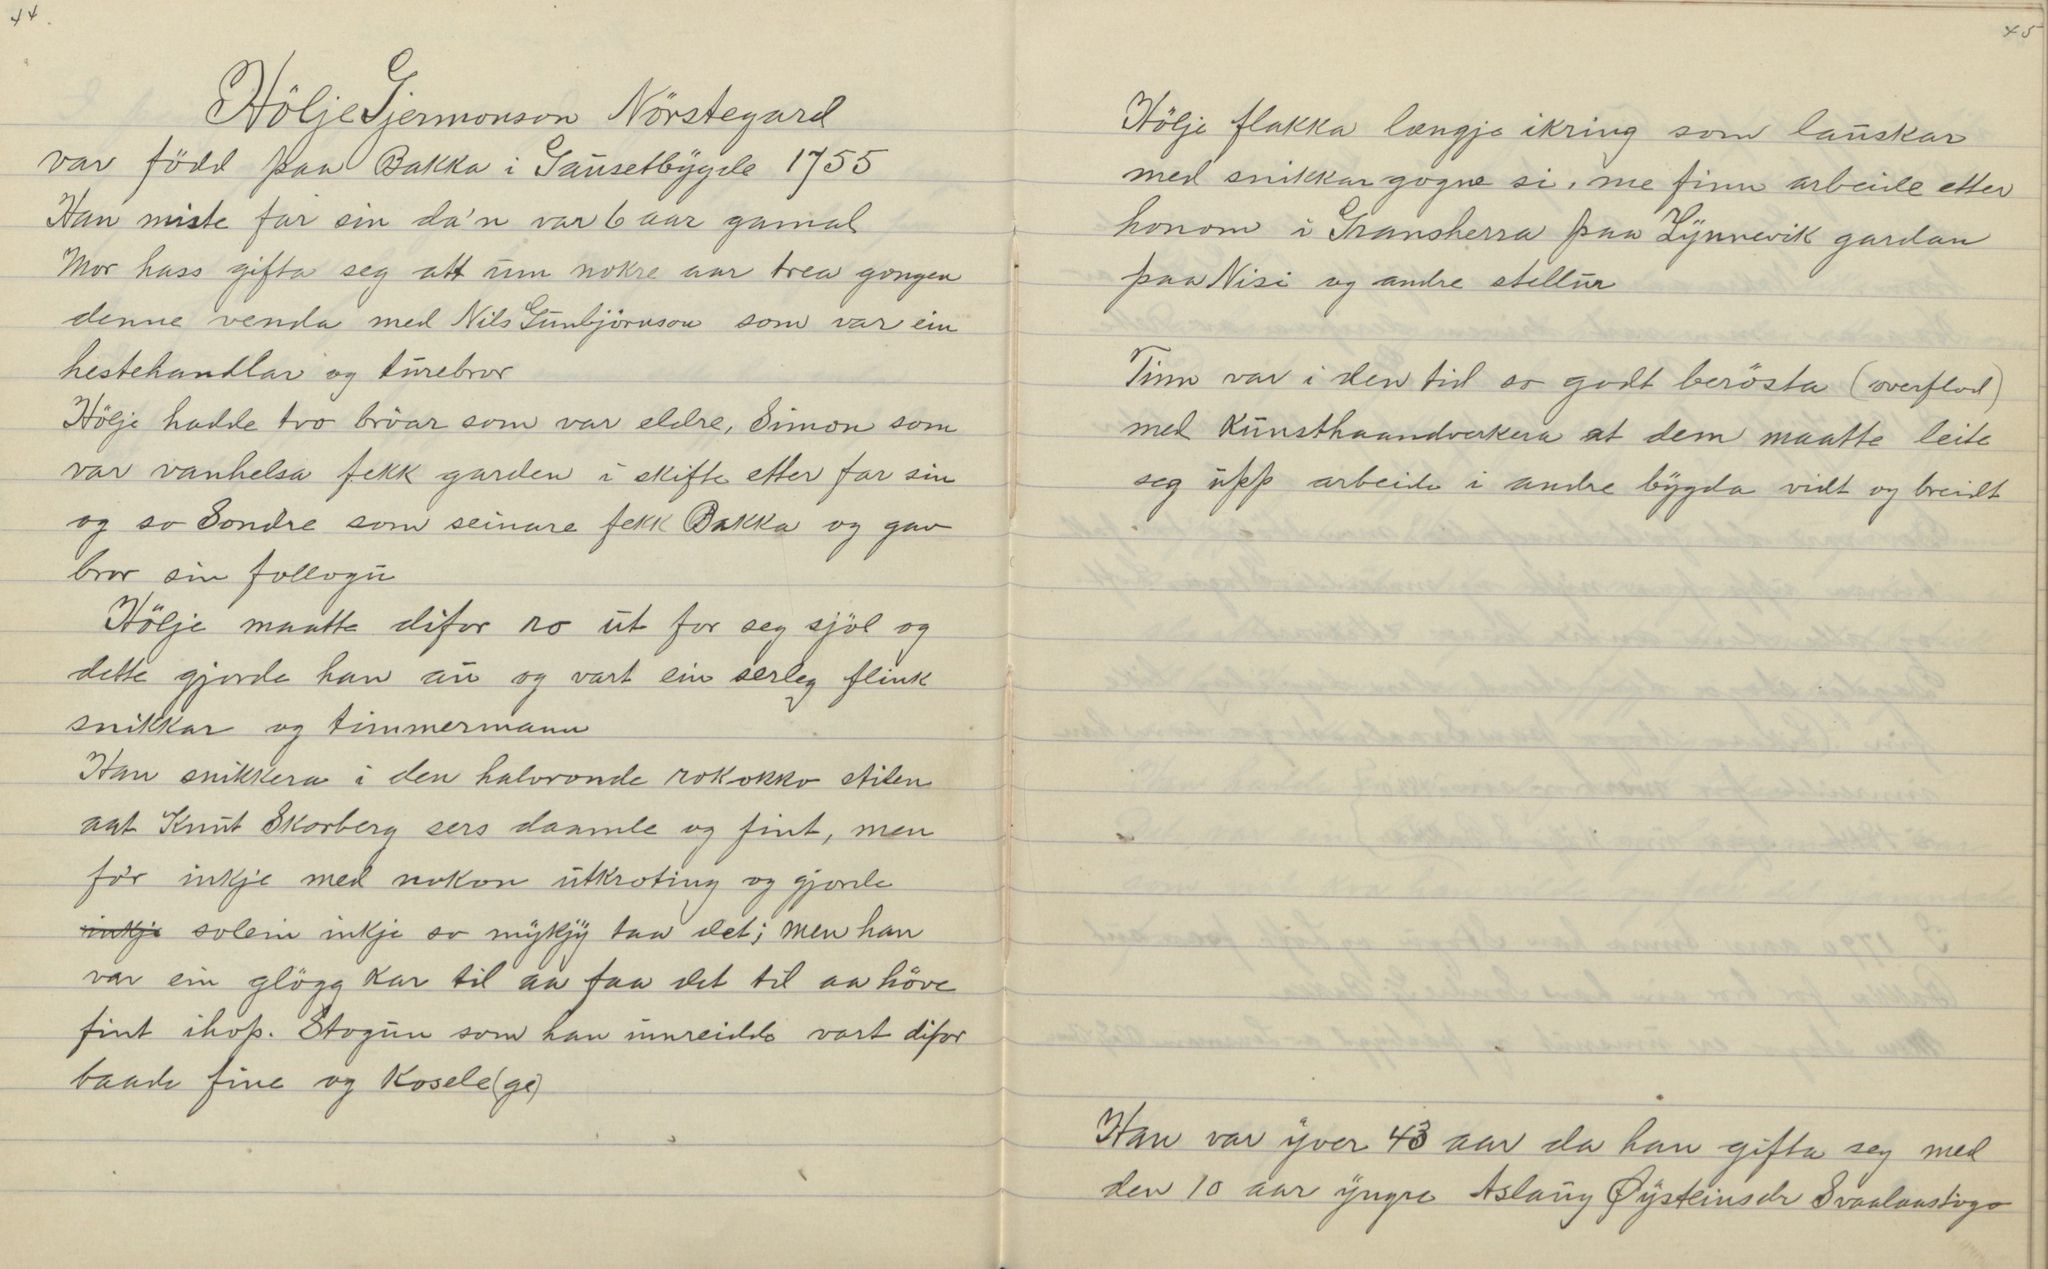 44.
Hölje Gjermonson Nörstegard
var född paa Bakka i Gausetbÿgde 1755
Han miste far sin da'n var 6 aar gamal
Mor hass gifta seg att um nokre aar trea gongen
denne venda med Nils Gunbjörnson som var ein
hestehandlar og turebror
Hölje hadde tvo bröar som var eldre, Simon som
var vanhelsa fekk garden i skifte etter far sin
og so Sondre som seinare fekk Bakka og gav
bror sin follogu
Hölje maatte difor ro ut for seg sjöl og
dette gjorde han au og vart ein serleg flink
snikkar og timmermann
Han snikkera i den halvronde rokokko stilen
aat Knut Skarberg sers daamle og fint, men
fór inkje med nokon utkroting og gjorde
inkje solein inkje so mÿkjÿ taa det; men han
var ein glögg kar til aa faa det til aa höve
fint ihop. Stogun som han innreidde vart difor
baade fine og kosele(ge)
45
Hölje flakka længje ikring som lauskar
med snikkargogne si, me finn arbeide etter
honom i Gransherra paa Lÿnnevik gardan
paa Nisi og andre stellur
Tinn var i den tid so godt berösta (overflod)
med kunsthaandverkera at dem maatte leite
seg upp arbeide i andre bÿgda vidt og breidt
Han var ÿver 43 aar da han gifta seg med
den 10 aar ÿngre Aslaug Øÿsteinsdr Svaalaastoga